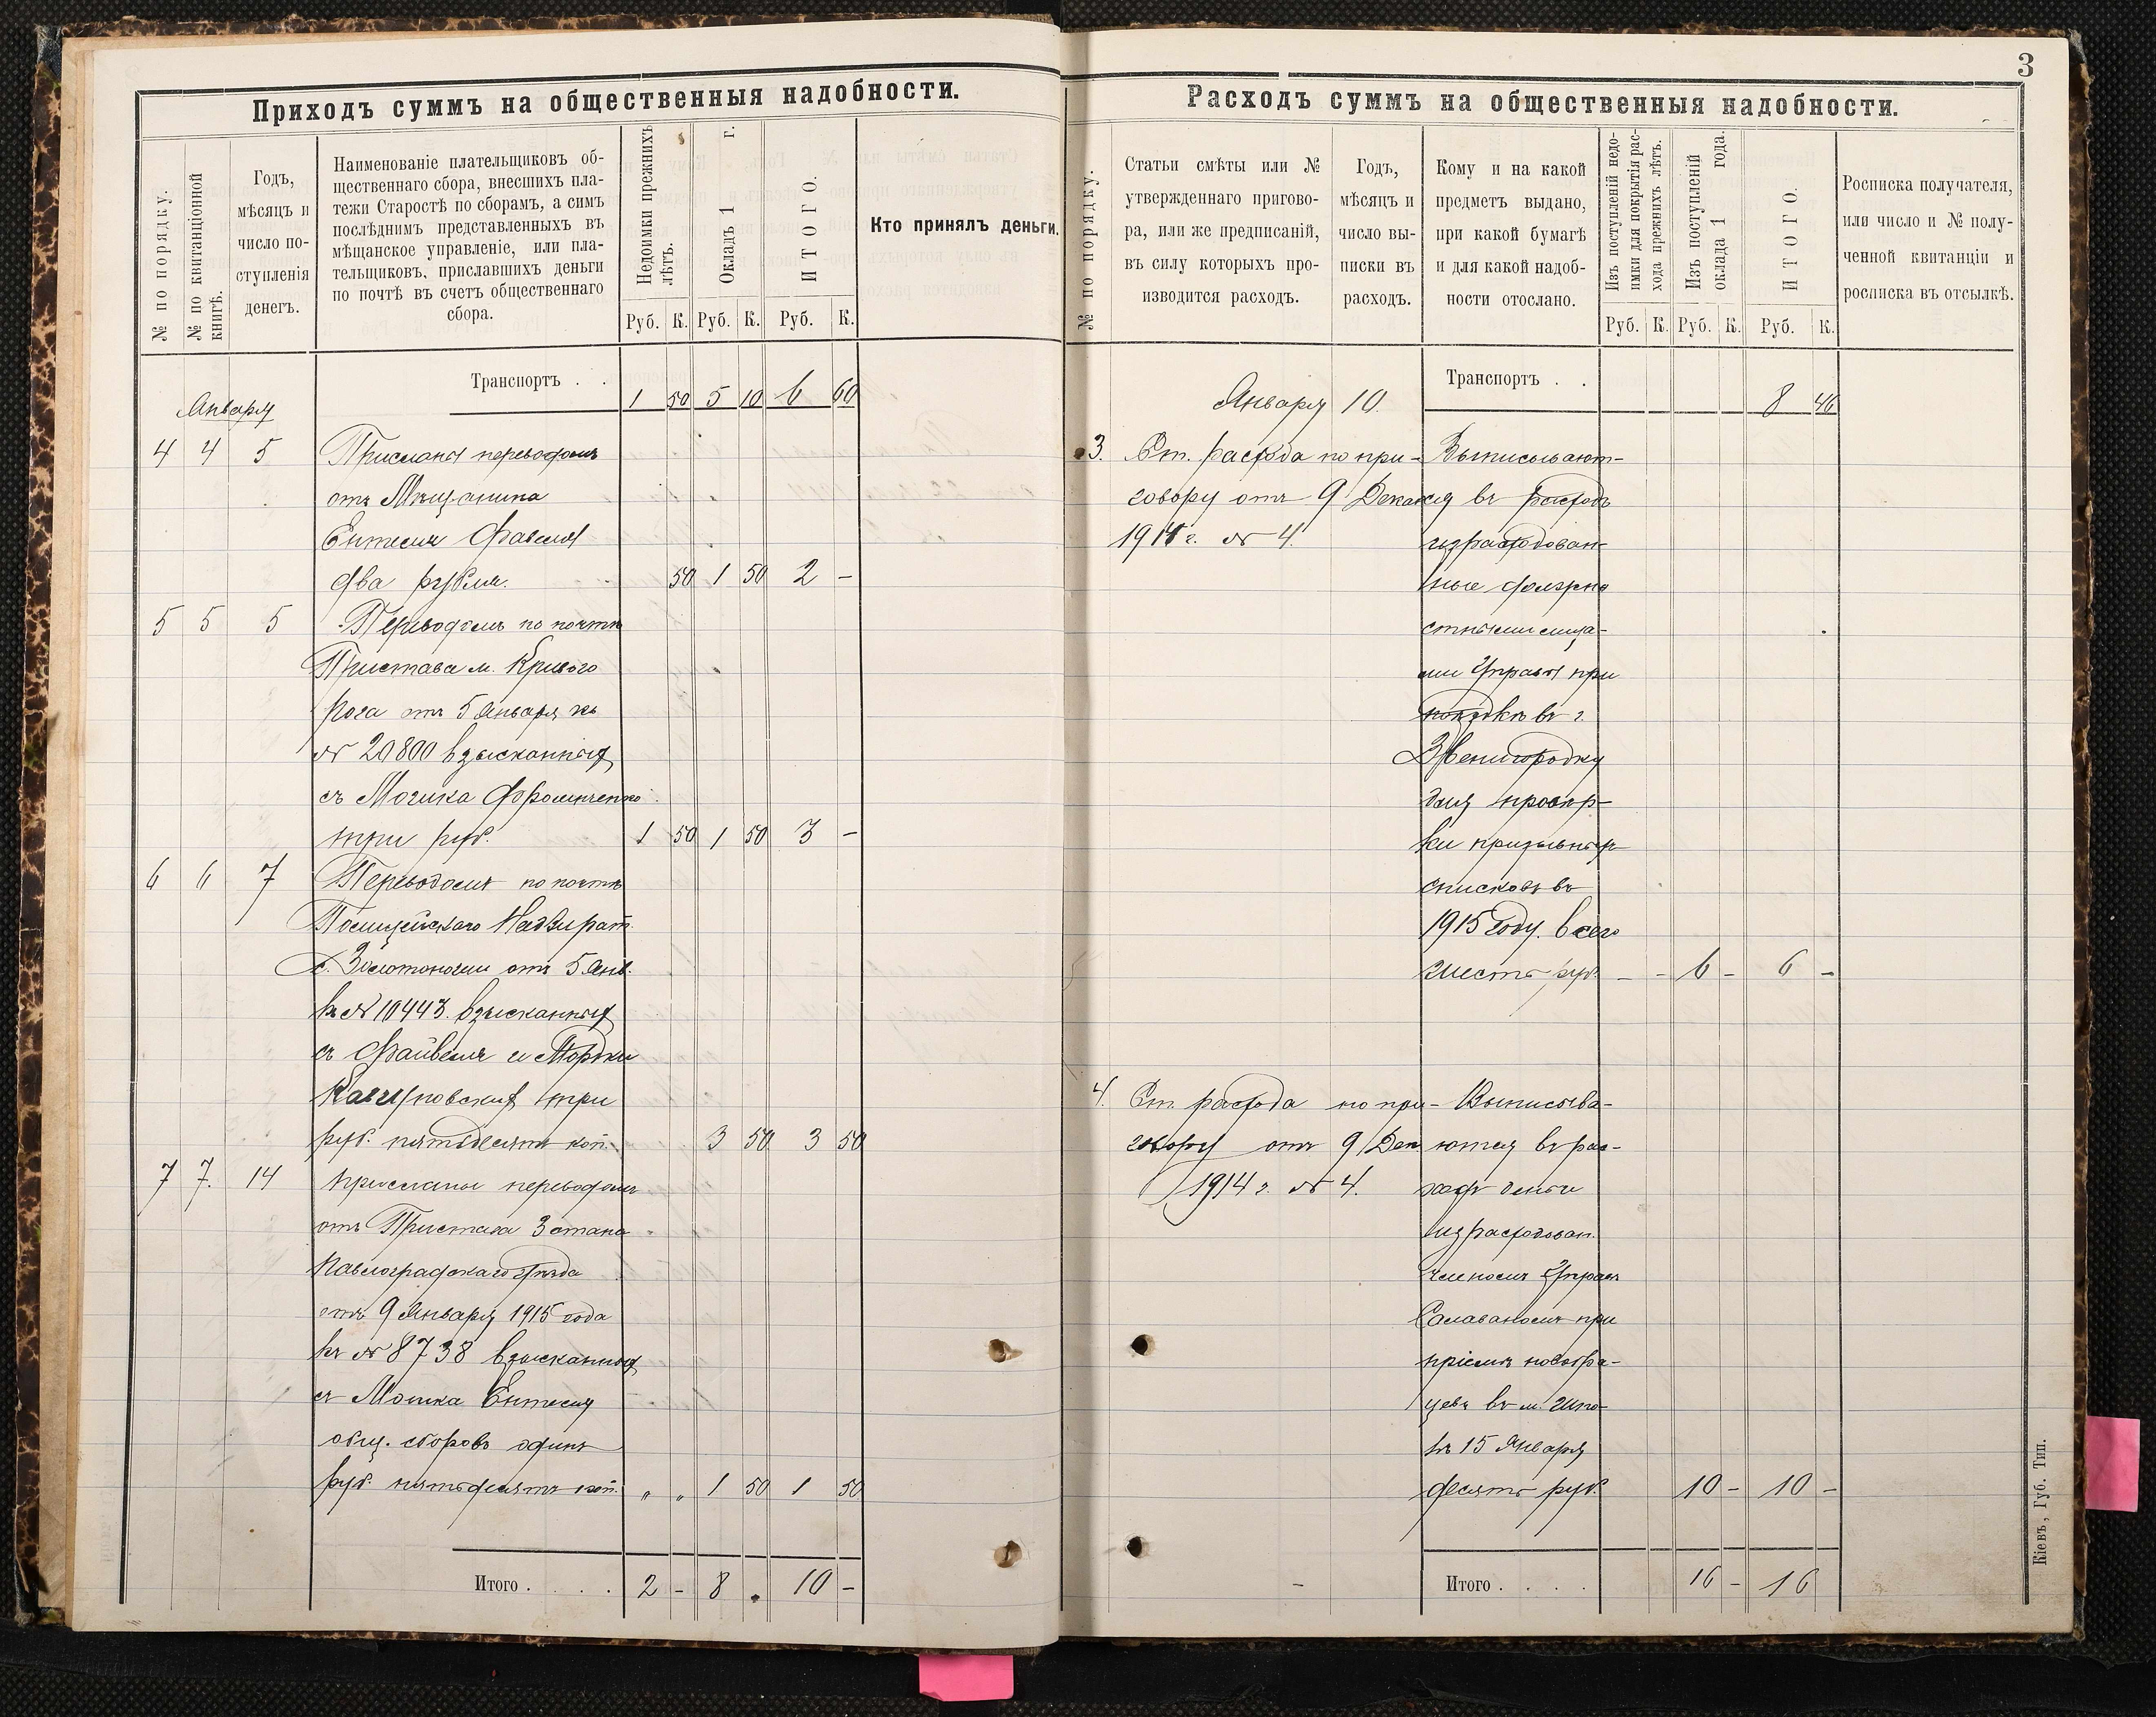 Приходъ суммъ на общественныя надобности.
№ по порядку.
№ по квитанціонной книгѣ.
Годъ,
мѣсяцъ и
число по-
ступленія
денегъ.
Наименованіе плательщиковъ об-
щественнаго сбора, внесшихъ пла-
тежи Старостѣ по сборамъ, а симъ
послѣднимъ представленныхъ въ
мѣщанское управленіе, или пла-
тельщиковъ, приславшихъ деньги
по почтѣ въ счетъ общественнаго
сбора.
Недоимки прежнихъ лѣтъ.
Окладъ 1 г.
ИТОГО.
Кто принялъ деньги.
Руб. К. Руб. К. Руб. К.
Транспортъ . . 1 50 5 10 6 60
Января
4 4 5 Присланы переводомъ
отъ Мѣщанина
Ентеля Фавеля
два рубля. 50 1 50 2 –
5 5 5 Переводомъ по почтѣ
Пристава м. Кривого
Рога отъ 5 Января къ
№ 20800 взысканныя
съ Мошка Фроминченко
три руб. 1 50 1 50 3 –
6 6 7 Переводомъ по почтѣ
Полицейскаго Надзират.
г. Золотоноши отъ 5 Янв.
къ № 10443. взысканныя
съ Файвеля и Мордки
три
руб. пятьдесятъ коп. 3 50 3 50
7 7. 14 присланы переводомъ
отъ Пристава 3 стана
Павлоградскаго уѣзда
отъ 9 Января 1915 года
къ № 8738 взысканныя
съ Мошка Ентеля
общ. сборовъ одинъ
руб. пятьдесятъ коп. „ „ 1 50 1 50
Итого . . . . 2 – 8 . 10 –
3
Расходъ суммъ на общественныя надобности.
№ по порядку.
Статьи смѣты или №
утвержденнаго пригово-
ра, или же предписаній,
въ силу которыхъ про-
изводится расходъ.
Годъ,
мѣсяцъ и
число вы-
писки въ
расходъ.
Кому и на какой
предметъ выдано,
при какой бумагѣ
и для какой надоб-
ности отослано.
Изъ поступленій недо-
имки для покрытія рас-
хода прежнихъ лѣтъ.
Изъ поступленій
оклада 1 года.
ИТОГО.
Росписка получателя,
или число и № полу-
ченной квитанціи и
росписка въ отсылкѣ.
Руб. К. Руб. К. Руб. К.
Января 10. Транспортъ . . 8 46
3. Ст. расхода по при- Выписывают-
говору отъ 9 Декаб ся въ расходъ
1914 г. № 4. израсходован-
ные должно
стными лица-
ми Управы при
поѣздкѣ въ г.
Звенигородку
для провѣр-
ки призывныхъ
списковъ въ
1915 году. всего
шесть руб. – – 6 – 6 –
4. Ст. расхода по при- Выписыва-
говору отъ 9 Дек ются въ рас-
1914 г. № 4. ходъ деньги
израсходован.
членомъ Управы
при
пріемѣ новобра-
цевъ въ м. Шпо-
къ 15 Января
десять руб. 10 – 10 –
Итого . . . . 16 – 16
Кіевъ, Губ. Тип.